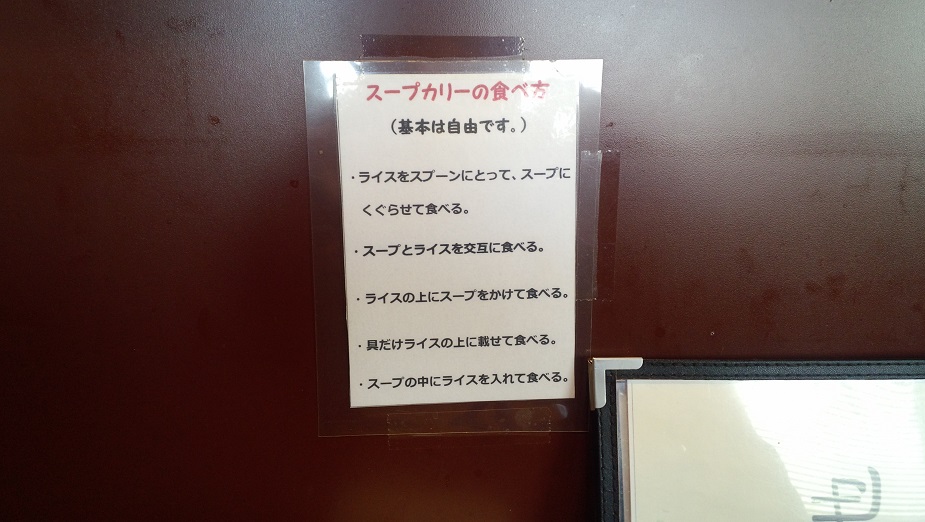 スープカリーの食べ方
（基本は自由です。）
・ライスをスプーンにとって、スープに
くぐらせて食べる。
・スープとライスを交互に食べる。
・ライスの上にスープをかけて食べる。
・具だけライスの上に載せて食べる。
・スープの中にライスを入れて食べる。